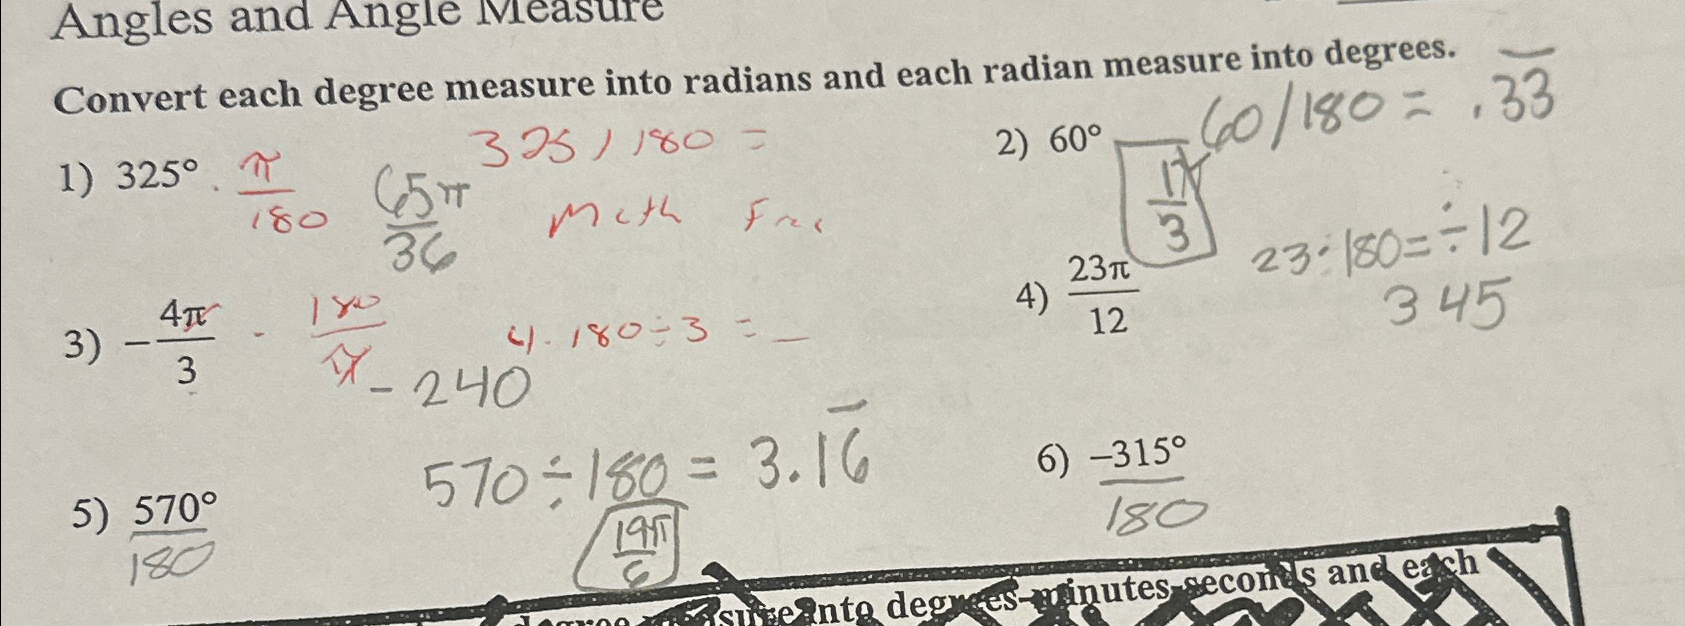 Angles and Angle Measure
Convert each degree measure into radians and each radian measure into degrees.
1) 325° · π/180
325 / 180 =
65π/36
Math Frac
2) 60°
60/180 = .33̅
1π/3
3) -4π/3 · 180/π
4 · 180 ÷ 3 = _
-240
4) 23π/12
23 · 180 = ÷ 12
345
5) 570°/180
570 ÷ 180 = 3.16̅
19π/6
6) -315°/180
degrees-minutes-seconds and each